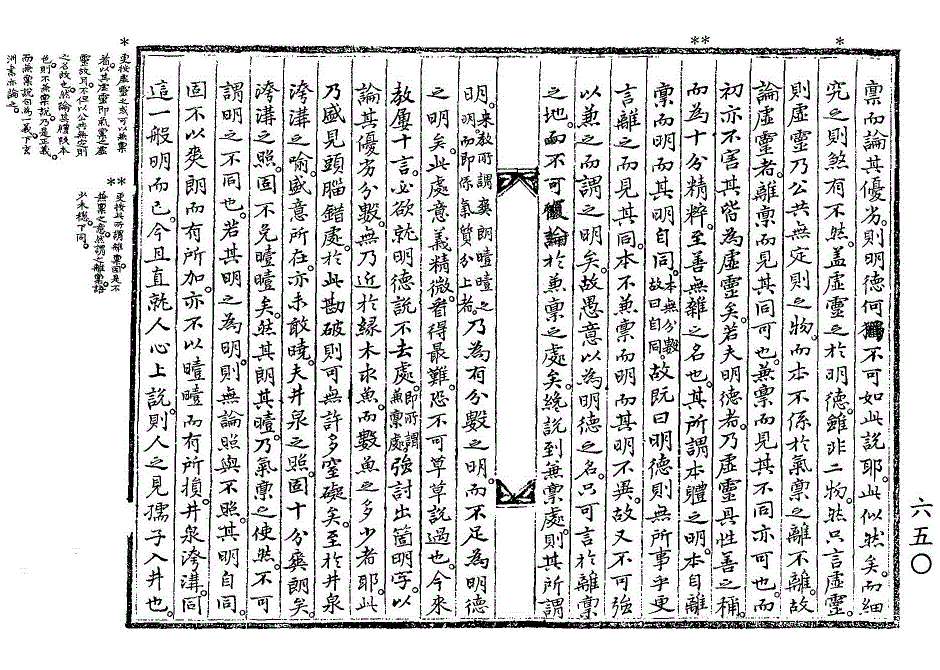 稟而論其優劣。則明德何獨不可如此說耶。此似然矣。而細
究之則煞有不然。盖虛靈之於明德。雖非二物。然只言虛靈。
則虛靈乃公共無定則之物。而本不係於氣稟之離不離。故
論虛靈者。離稟而見其同可也。兼稟而見其不同亦可也。而
初亦不害其皆為虛靈矣。若夫明德者。乃虛靈具性善之稱。
而為十分精粹。至善無雜之名也。其所謂本體之明。本自離
稟而明而其明自同。本無分數故曰自同。故旣曰明德則無所事乎更
言離之而見其同。本不兼稟而明而其明不異。故又不可強
以兼之而謂之明矣。故愚意以為明德之名。只可言於離稟
之地。而不可復論於兼稟之處矣。纔說到兼稟處。則其所謂
明。來教所謂爽朗曀曀之明而即係氣質分上者。乃為有分數之明。而不足為明德
之明矣。此處意義精微。看得最難。恐不可草草說過也。今來
教屢十言。必欲就明德說不去處。即所謂兼稟處。強討出箇明字。以
論其優劣分數。無乃近於緣木求魚。而數魚之多少者耶。此
乃盛見頭腦錯處。於此勘破則可無許多窒礙矣。至於井泉
洿溝之喩。盛意所在。亦未敢曉。夫井泉之照。固十分爽朗矣。
洿溝之照。固不免曀曀矣。然其朗其曀。乃氣稟之使然。不可
謂明之不同也。若其明之為明。則無論照與不照。其明自同。
固不以爽朗而有所加。亦不以曀曀而有所損。井泉洿溝。同
這一般明而已。今且直就人心上說。則人之見孺子入井也。
六五〇
*
**
*更按虛靈之或可以兼稟
者。以其虛靈即氣稟之虛
靈故耳。不但以公共無定則
之名故也。然論其體段本
色。則不兼稟說。乃是正義。
而兼稟說。自為一義。下玄
洲書亦論之。
**更按此所謂離稟。固是不
兼稟之意。然謂之離稟。語
少未穩。下同。